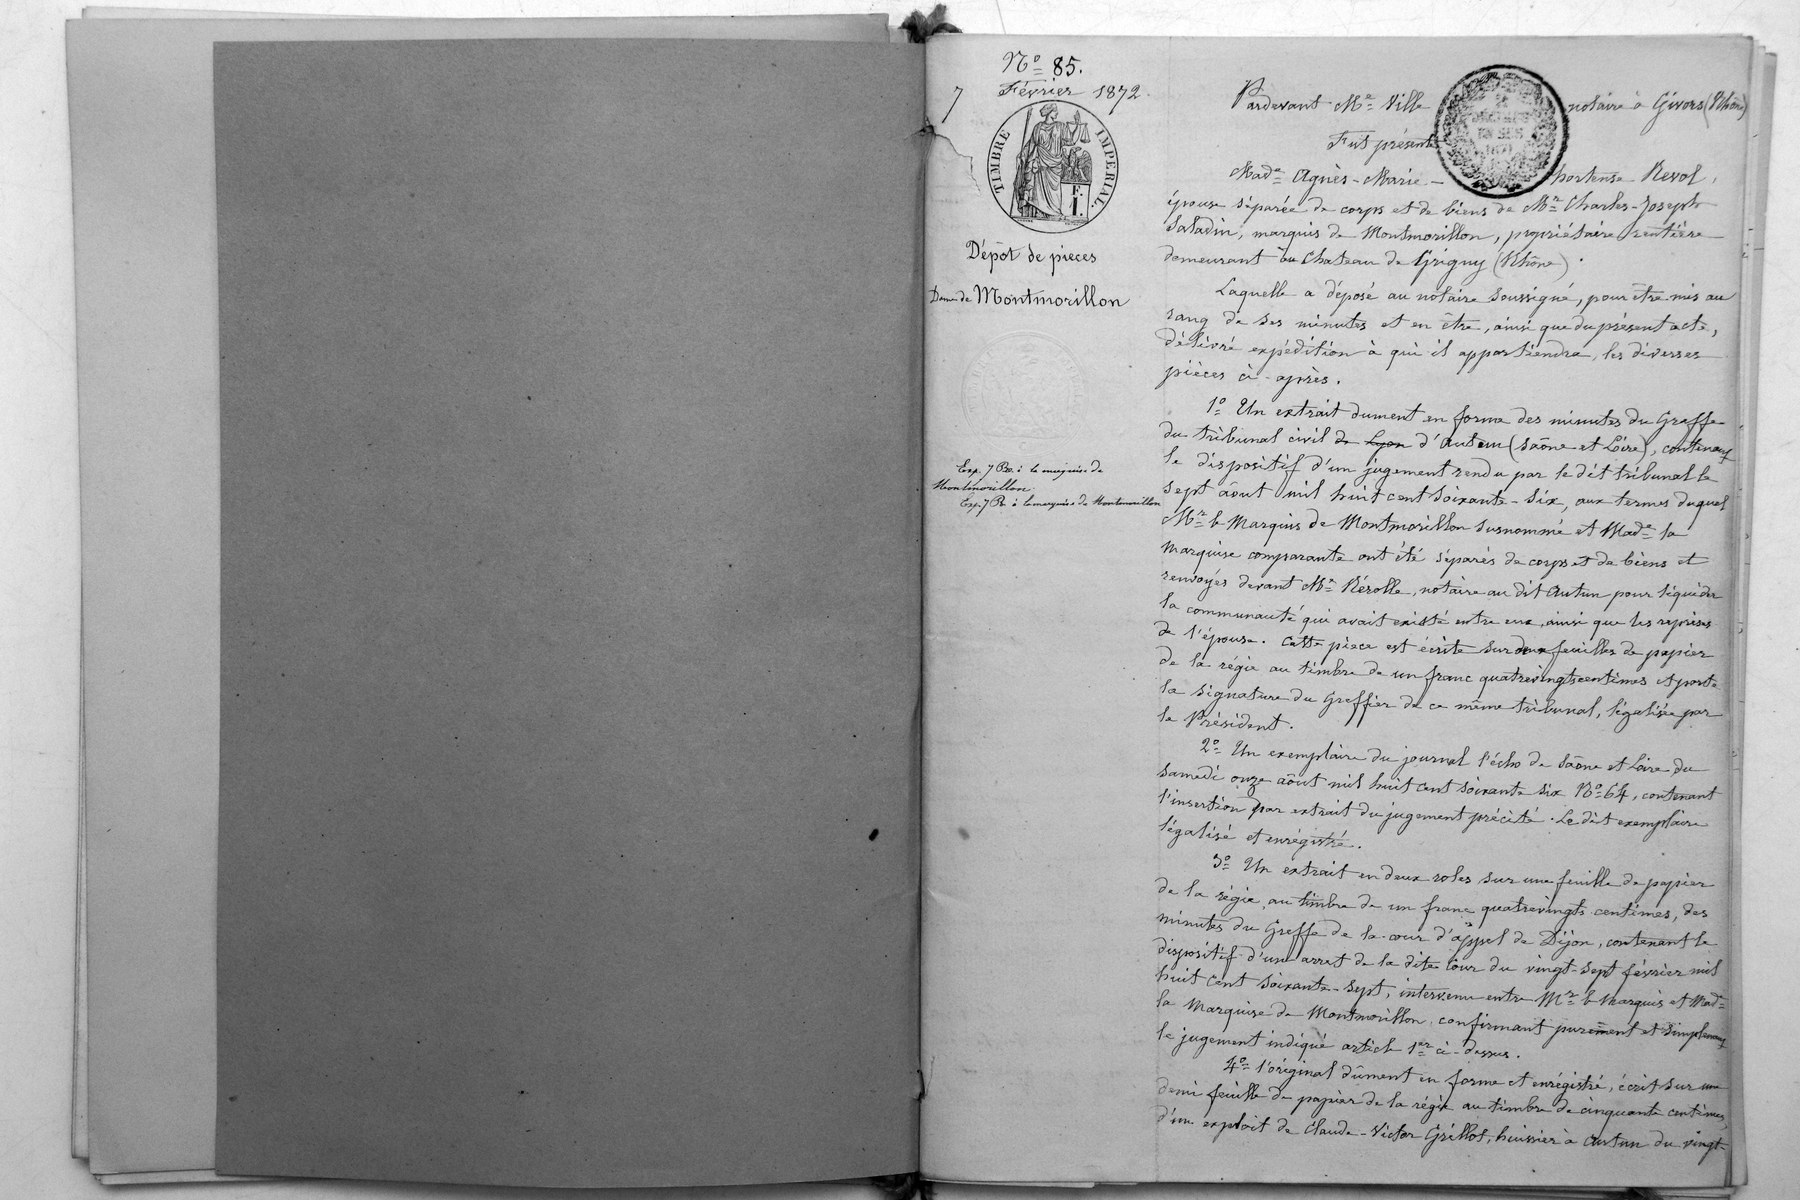 Nº 85.
7 Février 1872.
TIMBRE IMPERIAL.
F.
I.
Dépôt de pièces
Dame de Montmorillon
Exp. 7 R. à la marquise de
Montmorillon.
Exp. 7 R. à la marquise de Montmorillon
Pardevant Me Ville notaire à Givors (Rhône)
Fut présente
Made Agnès-Marie-hortense Revol,
épouse séparée de corps et de biens de Mr Charles-Joseph
Saladin, marquis de Montmorillon, propriétaire rentière
demeurant au Chateau de Grigny (Rhône).
Laquelle a déposé au notaire soussigné, pour être mis au
rang de ses minutes et en être, ainsi que du présent acte,
délivré expédition à qui il appartiendra, les diverses
pièces ci-après.
1º Un extrait dument en forme des minutes du Greffe
du tribunal civil de Lyon d'Autun (Saône et Loire), contenant
le dispositif d'un jugement rendu par le dit tribunal le
sept août mil huit cent soixante-six, aux termes duquel
Mr le Marquis de Montmorillon susnommé et Made la
Marquise comparante ont été séparés de corps et de biens et
renvoyés devant Me Rérolle, notaire au dit Autun pour liquider
la communauté qui avait existé entre eux, ainsi que les reprises
de l'épouse. Cette pièce est écrite sur deux feuilles de papier
de la régie au timbre de un franc quatrevingts centimes et porte
la signature du Greffier de ce même tribunal, légalisée par
le Président.
2º Un exemplaire du journal l'écho de Saône et Loire du
samedi onze août mil huit cent soixante six Nº 64, contenant
l'insertion par extrait du jugement précité. Le dit exemplaire
légalisé et enrégistré.
3º Un extrait en deux roles sur une feuille de papier
de la régie, au timbre de un franc quatrevingts centimes, des
minutes du Greffe de la cour d'appel de Dijon, contenant le
dispositif d'un arret de la dite Cour du vingt-sept février mil
huit cent soixante-sept, intervenu entre Mr le Marquis et Made
la Marquise de Montmorillon, confirmant purement et simplement
le jugement indiqué article 1er ci-dessus.
4º l'original dûment en forme et enrégistré, écrit sur une
demi feuille de papier de la régie au timbre de cinquante centimes,
d'un exploit de Claude-Victor Grillot, huissier à Autun du vingt-